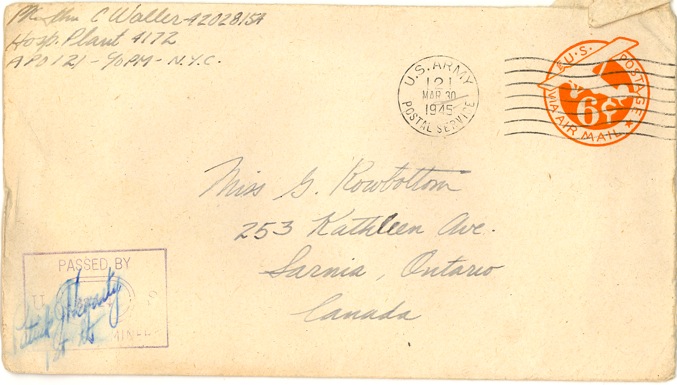 Pfc John C Waller 42028154
Hosp. Plant 4172
APO 121 - % PM - N.Y.C.
U.S. ARMY
121
MAR 30
1945
POSTAL SERVICE
U.S. POSTAGE
6¢
VIA AIR MAIL
Miss G. Rowbottom
253 Kathleen Ave.
Sarnia, Ontario
Canada
PASSED BY